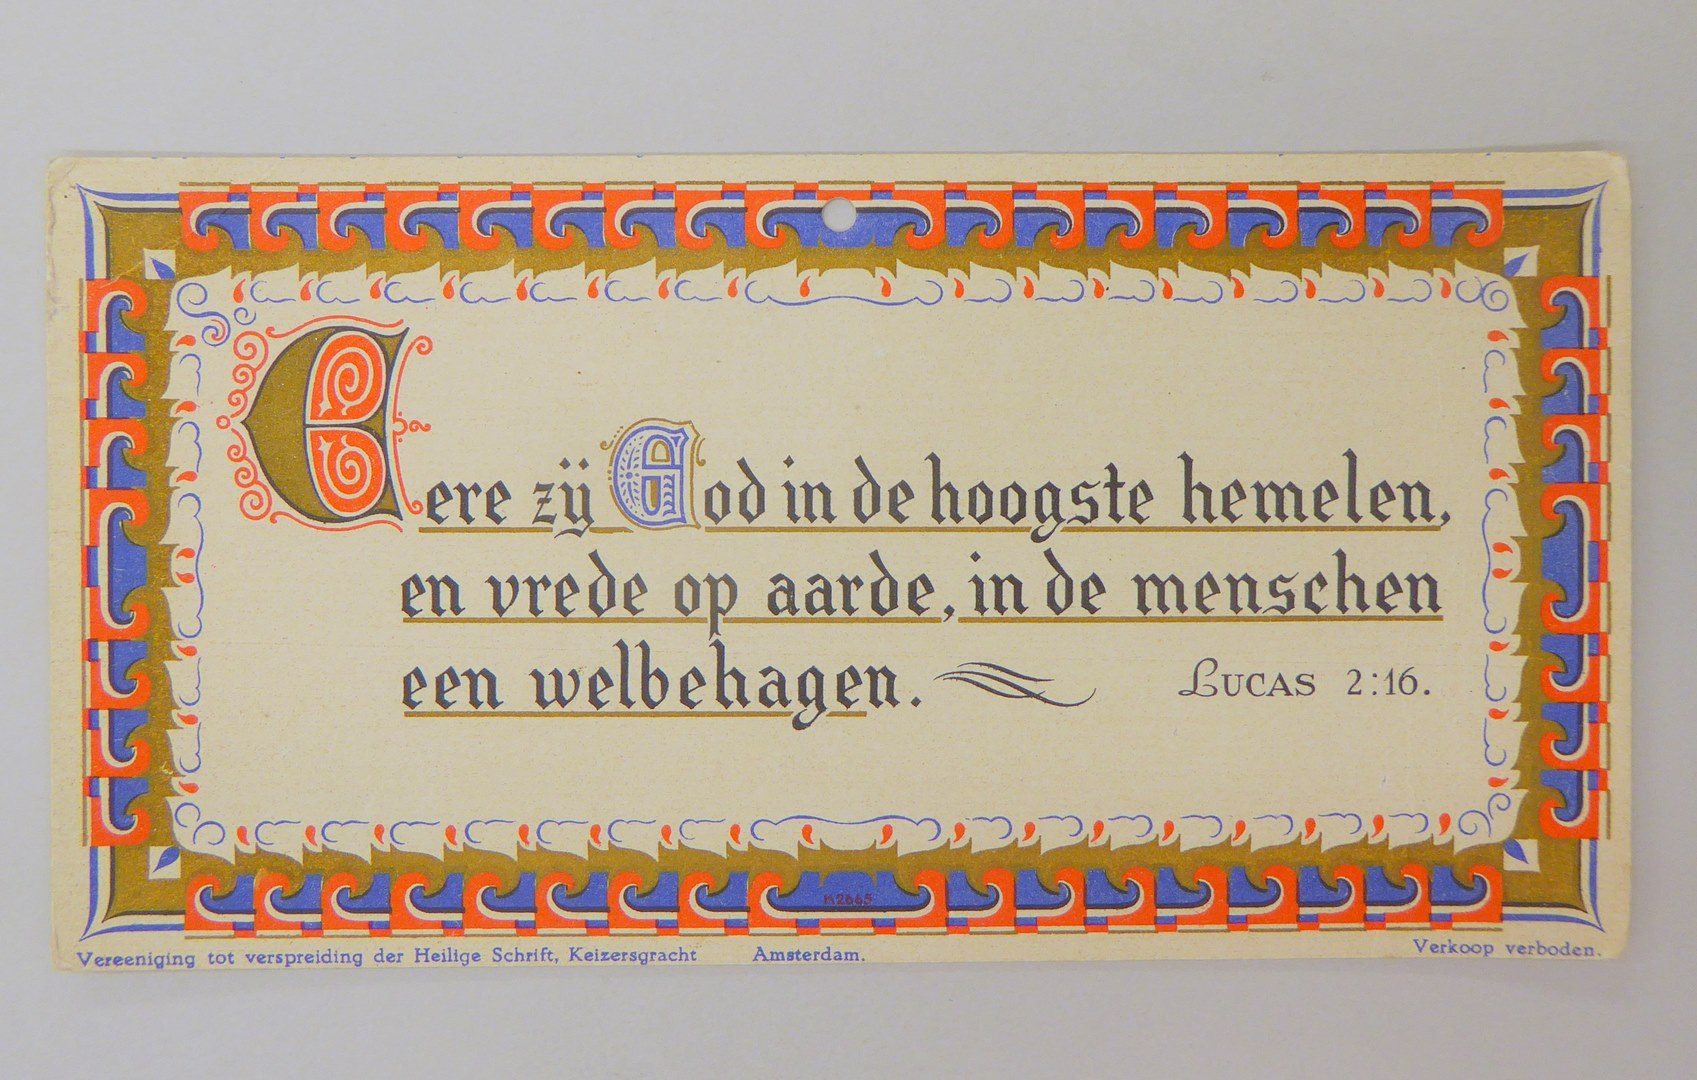 Eere zij God in de hoogste hemelen,
en vrede op aarde, in de menschen
een welbehagen.
Lucas 2:16.
K2665
Vereeniging tot verspreiding der Heilige Schrift, Keizersgracht Amsterdam.
Verkoop verboden.